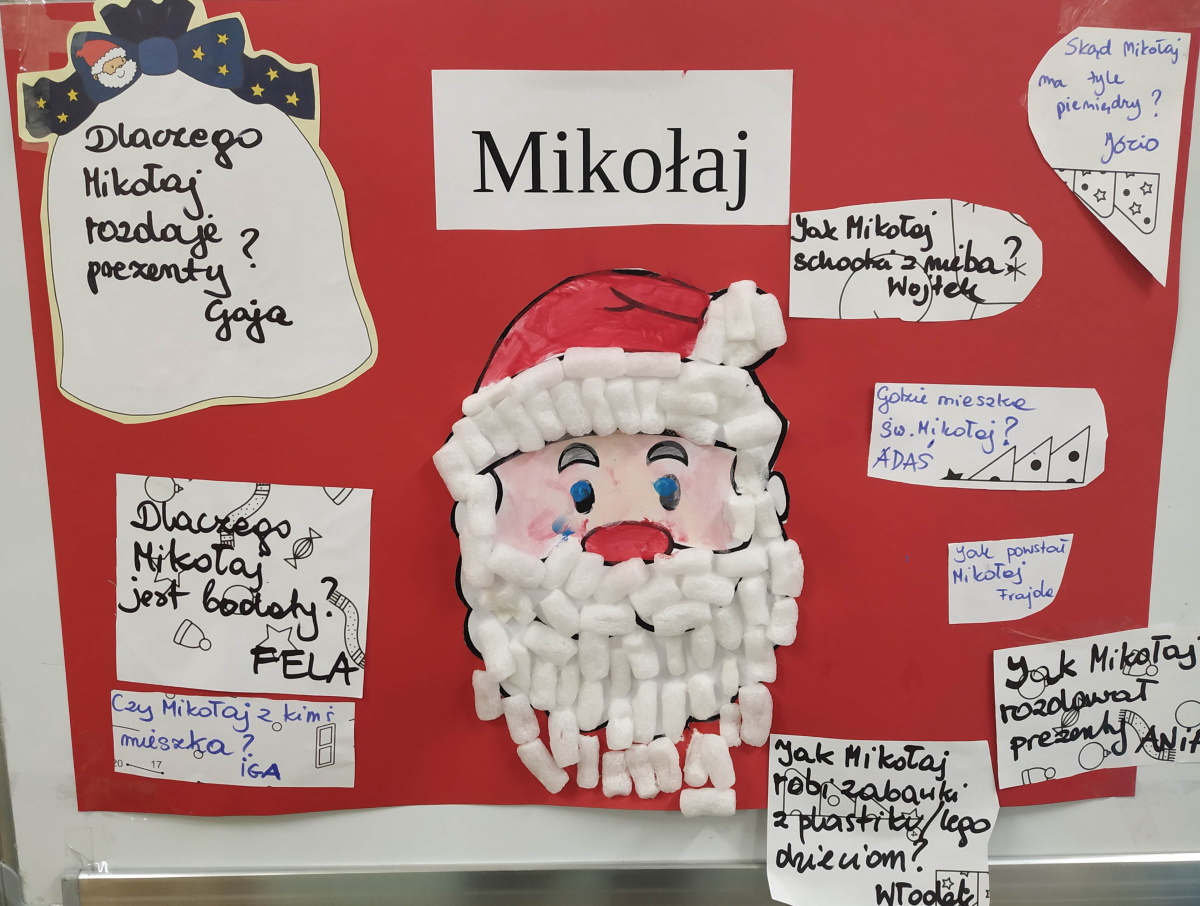 Mikołaj
Dlaczego
Mikołaj
rozdaje
prezenty?
Gaja
Skąd Mikołaj
ma tyle
pieniędzy?
Józio
Jak Mikołaj
schodzi z nieba?
Wojtek
Gdzie mieszka
św. Mikołaj?
ADAŚ
Jak powstał
Mikołaj
Frajda
Dlaczego
Mikołaj
jest bogaty?
FELA
Czy Mikołaj z kimś
mieszka?
IGA
20 17
Jak Mikołaj
rozdawał
prezenty
Jak Mikołaj
robi zabawki
z plastiku/lego
dzieciom?
Włodek